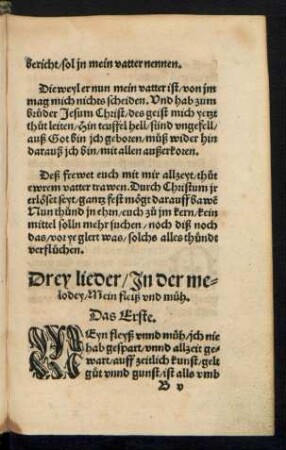 bericht/sol jn mein vatter nennen.
Die weyl er nun mein vatter ist/von jm
mag mich nichts scheiden. Vnd hab zum
brůder Jesum Christ/des geist mich yetzt
thůt leiten/Hin teuffel hell/sünd vngefell/
auß Got bin jch geboren/můß wider hin
darauß jch bin/mit allen außerkoren.
Deß frewet euch mit mir allzeyt/thůt
ewrem vatter trawen. Durch Christum jr
erlöset seyt/gantz fest mögt darauff bawē
Nun thůnd jn ehrn/euch zů jm kern/kein
mittel solln mehr suchen/noch diß noch
das/vor ye glert was/solchs alles thůndt
verflůchen.
Drey lieder/In der me-
lodey/Mein fleiß vnd müh.
Das Erste.
MEyn fleyß vnnd müh/jch nie
hab gespart/vnnd allzeit ge-
wart/auff zeitlich kunst/gelt
gůt vnnd gunst/ist alls vmb
B v